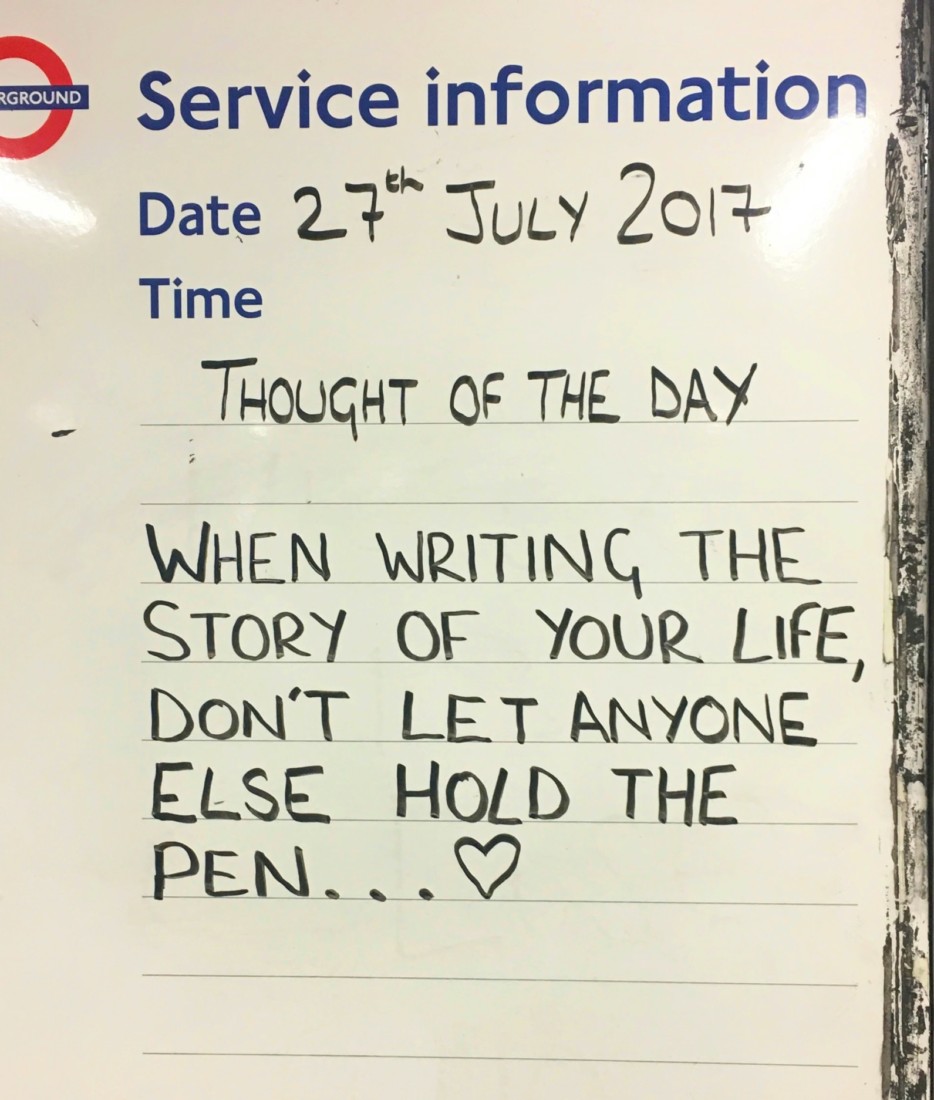 RGROUND
Service information
Date 27th JULY 2017
Time
THOUGHT OF THE DAY
WHEN WRITING THE
STORY OF YOUR LIFE,
DON'T LET ANYONE
ELSE HOLD THE
PEN...♡